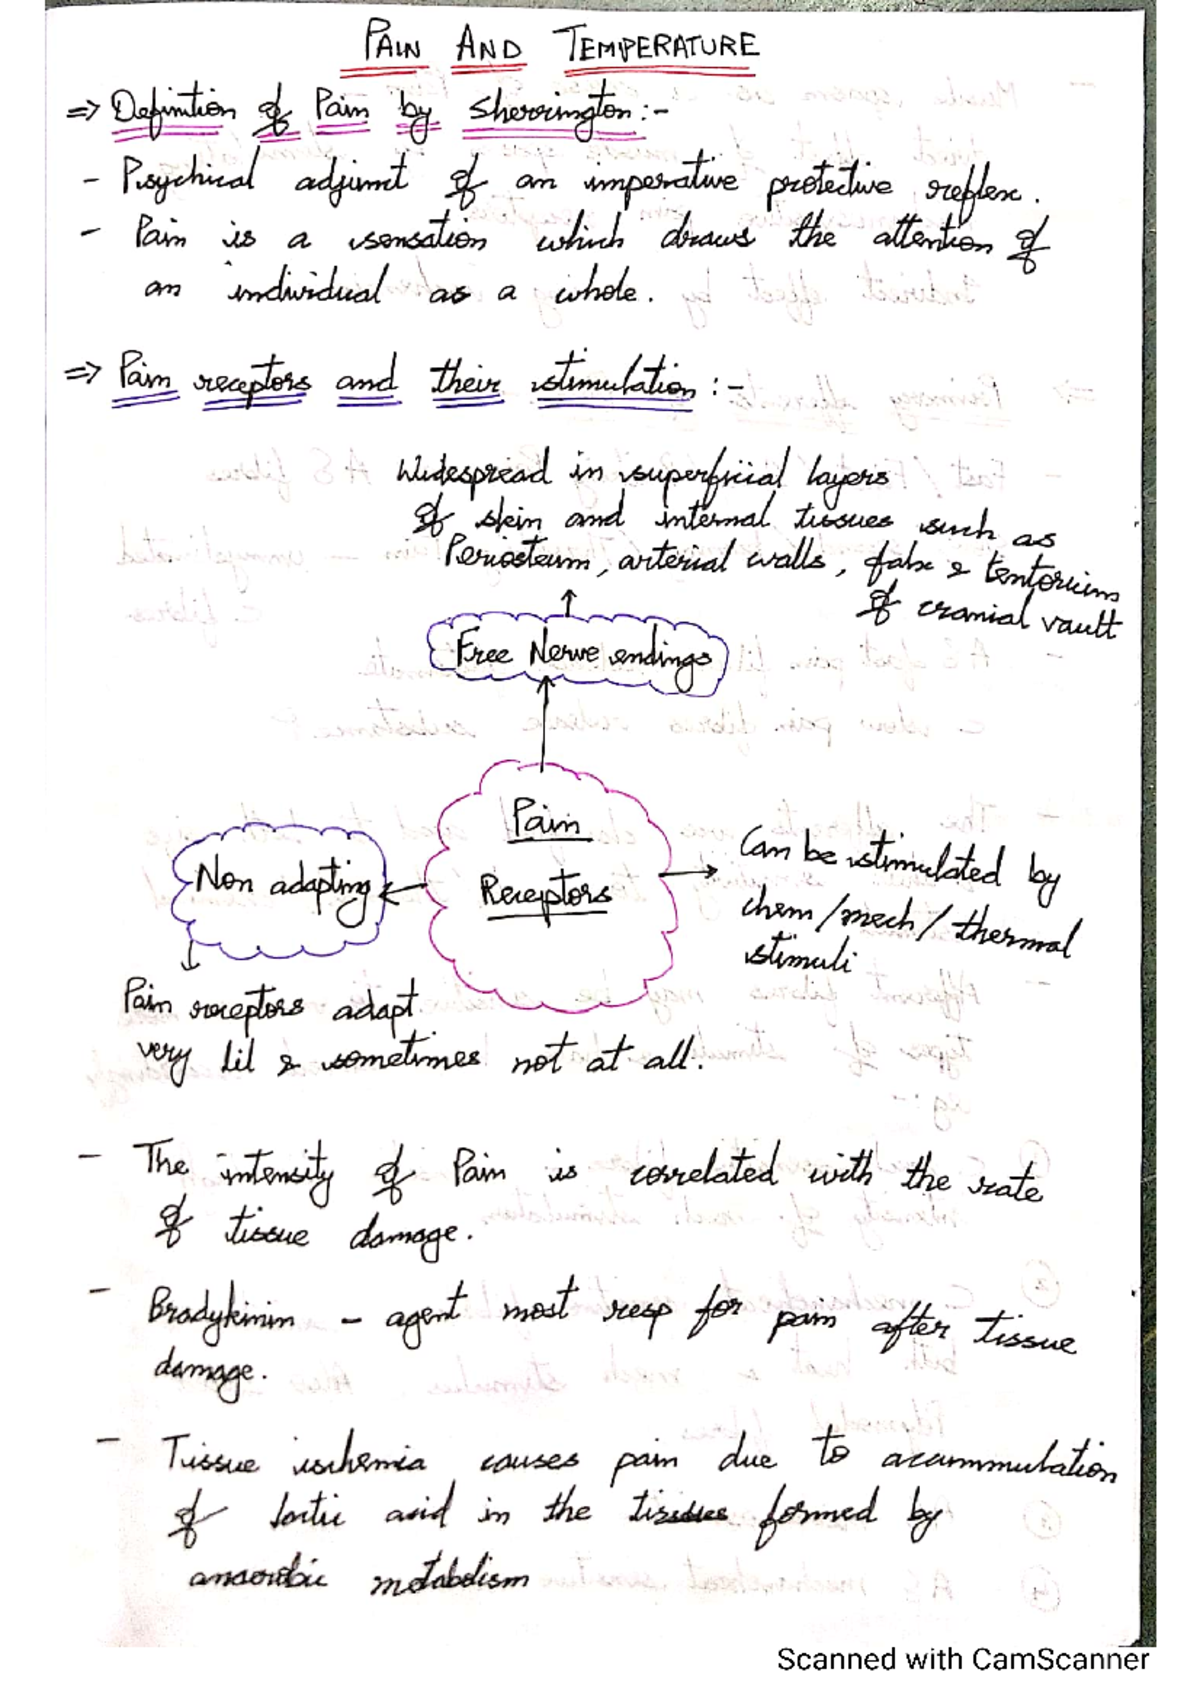 PAIN AND TEMPERATURE
=> Definition of Pain by Sherrington:-
- Psychical adjunct of an imperative protective reflex.
- Pain is a sensation which draws the attention of
an individual as a whole.
=> Pain receptors and their stimulation:-
Widespread in superficial layers
of skin and internal tissues such as
Periosteum, arterial walls, falx & tentorium
of cranial vault
Free Nerve endings
Pain
Receptors
Non adapting
Can be stimulated by
chem/mech/thermal
stimuli
Pain receptors adapt
very lil & sometimes not at all.
- The intensity of Pain is correlated with the rate
of tissue damage.
- Bradykinin - agent most resp for pain after tissue
damage.
- Tissue ischemia causes pain due to acummulation
of lactic acid in the tissues formed by
anaerobic metabolism
Scanned with CamScanner